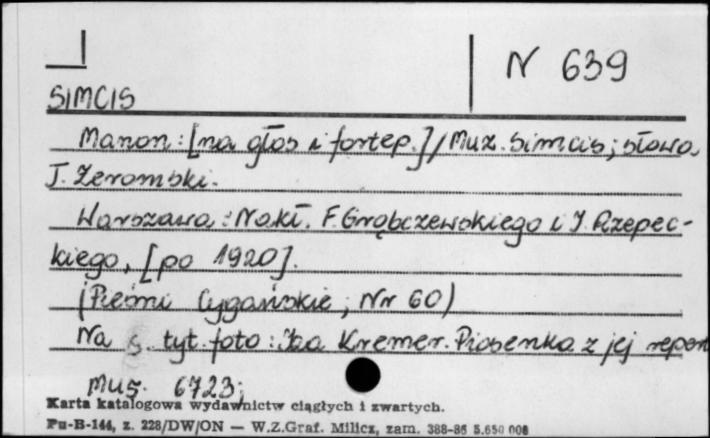 N 639
SIMCIS
Manon : [na głos i fortep.] / Muz. Simcis ; słowa
J. Żeromski.
Warszawa : Nakł. F. Grąbczewskiego i J. Rzepec-
kiego, [po 1920].
(Pieśni Cygańskie ; Nr 60)
Na s. tyt. foto : Iza Kremer. Piosenka z jej reper
Mus. 6723;
Karta katalogowa wydawnictw ciągłych i zwartych.
Pu-B-144, z. 228/DW/ON — W.Z.Graf. Milicz, zam. 388-86 5.650 000